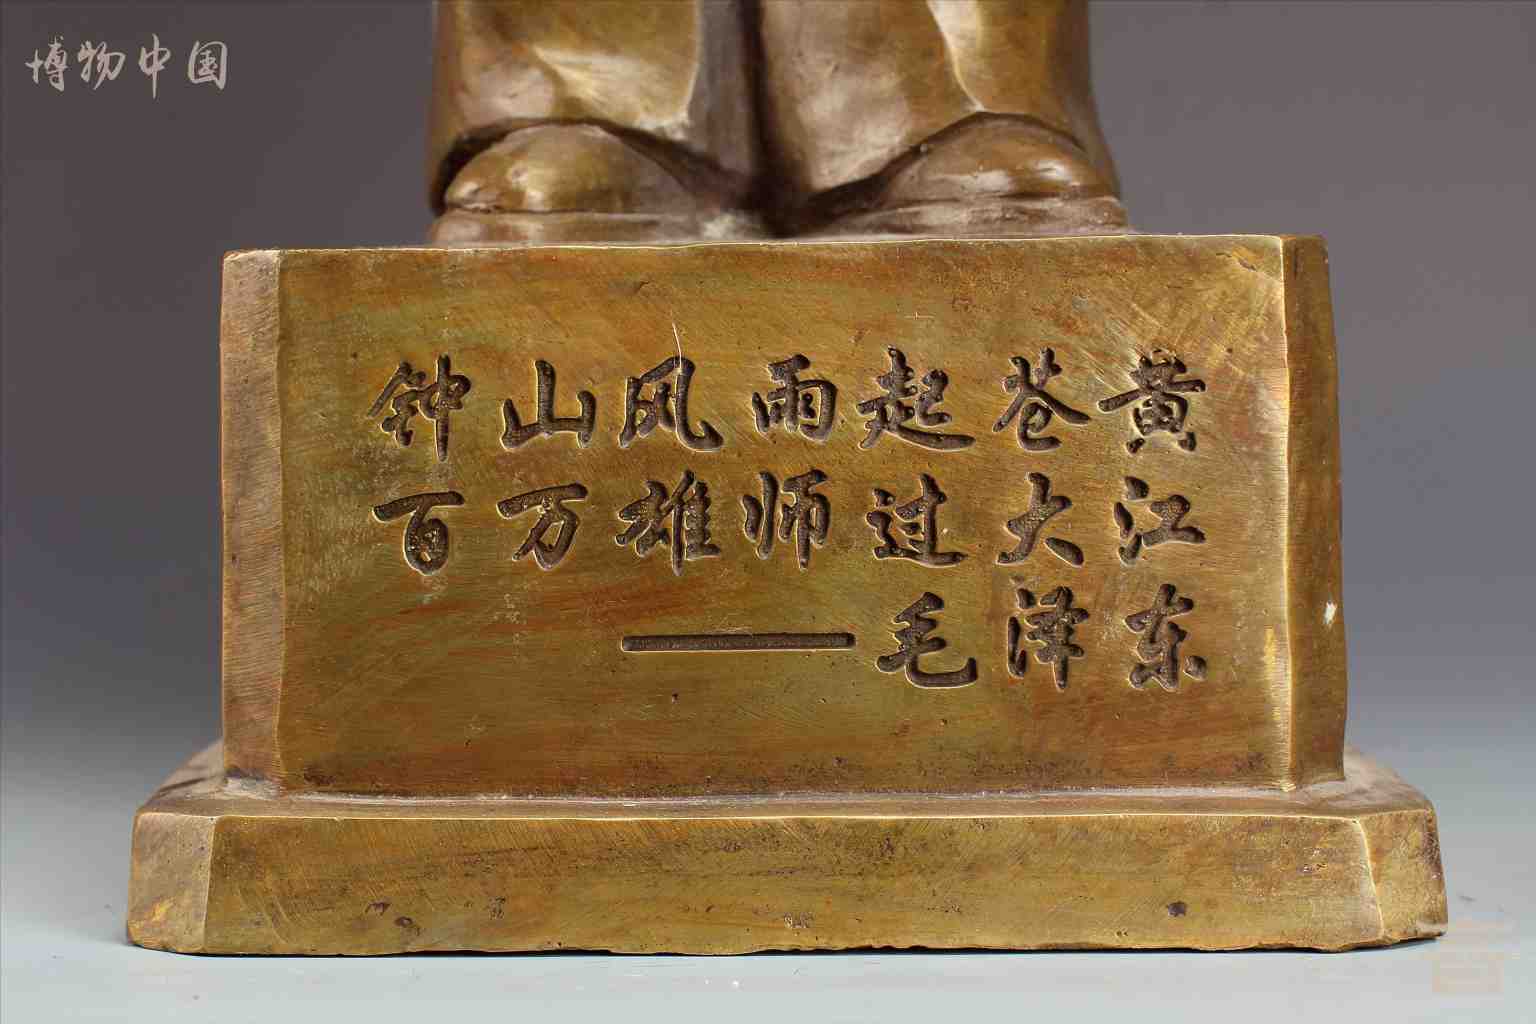 博物中国
钟山风雨起苍黄
百万雄师过大江
——毛泽东